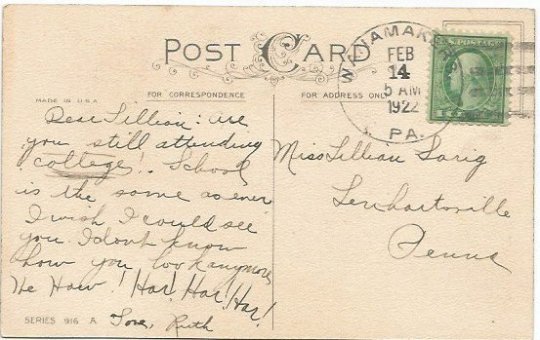 POST CARD
WANAMAKERS
FEB
14
5 AM
1922
PA.
U.S. POSTAGE
MADE IN U.S.A.
FOR CORRESPONDENCE
FOR ADDRESS ONLY
Dear Lillian: are
you still attending
college! School
is the same as ever
I wish I could see
you. I don't know
how you look anymore
He Haw! Har! Har! Har!
Love, Ruth
Miss Lillian Sarig
Lenhartsville
Penna
SERIES 916 A